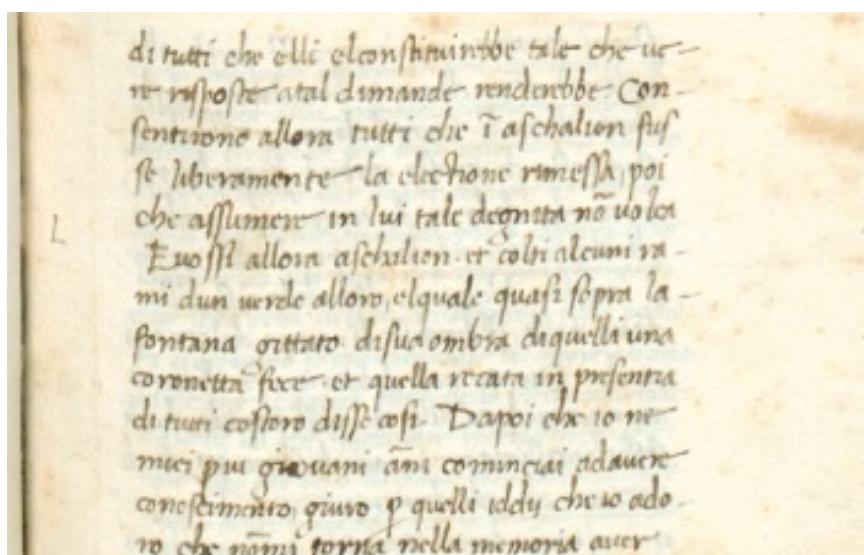 di tutti che elli elconstituirebbe tale che ue-
re risposte atal dimande renderebbe. Con-
sentirono allora tutti che ĩ aschalion fus
se liberamente la electione rimessa, poi
che assumere in lui tale degnita nõ uolea
L
Euossi allora aschalion. et colti alcuni ra-
mi dun uerde alloro, elquale quasi sopra la-
fontana gittato disua ombra diquelli una
coronetta fece. et quella recata in presentia
di tutti costoro disse cosi. Dapoi che io ne
miei p̄iu giouani ãni cominciai adauere
conoscimento, giuro p̄ quelli iddij che io ado-
ro che nõmi torna nella memoria auer